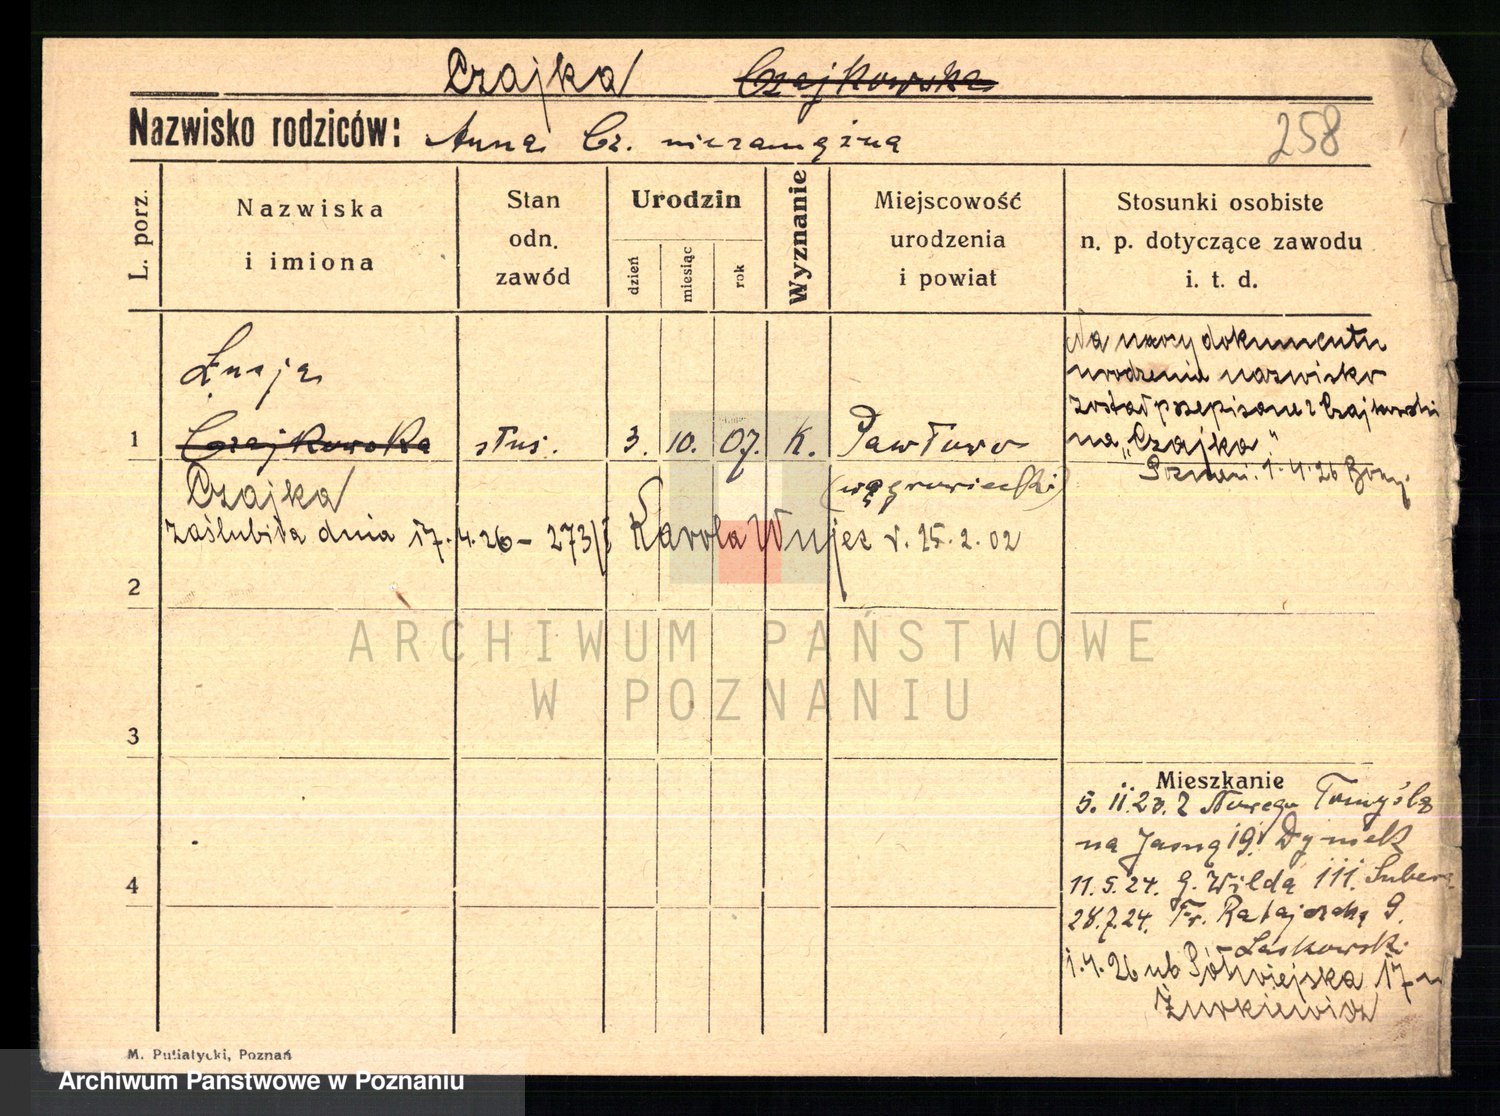 Czajka Czajkowska
Nazwisko rodziców: Anna Cz. niezamężna
258
L. porz.
Nazwiska
i imiona
Stan
odn.
zawód
Urodzin
dzień
miesiąc
rok
Wyznanie
Miejscowość
urodzenia
i powiat
Stosunki osobiste
n. p. dotyczące zawodu
i. t. d.
Łucja
1 Czajkowska służ. 3. 10. 07. K. Pawłowo
Czajka (wągrowiecki)
zaślubiła dnia 17.4.26 – 273/I Karola Wujec 15.2.02
Na mocy dokumentu
urodzenia nazwisko
został przepisane z Czajkowski
na „Czajka”
Poznań. 1.4.26
2
3
4
ARCHIWUM PAŃSTWOWE
W POZNANIU
Mieszkanie
5. 11. 23. z Nowego Tomyśla
na Jasną 19 Dymek
11.5.24. G. Wilda 111.
28.7.24. Fr. Ratajczaka 9.
Laskowski
1.4.26 ub Półwiejska 17
Żurkiewicz
M. Putiatycki, Poznań
Archiwum Państwowe w Poznaniu